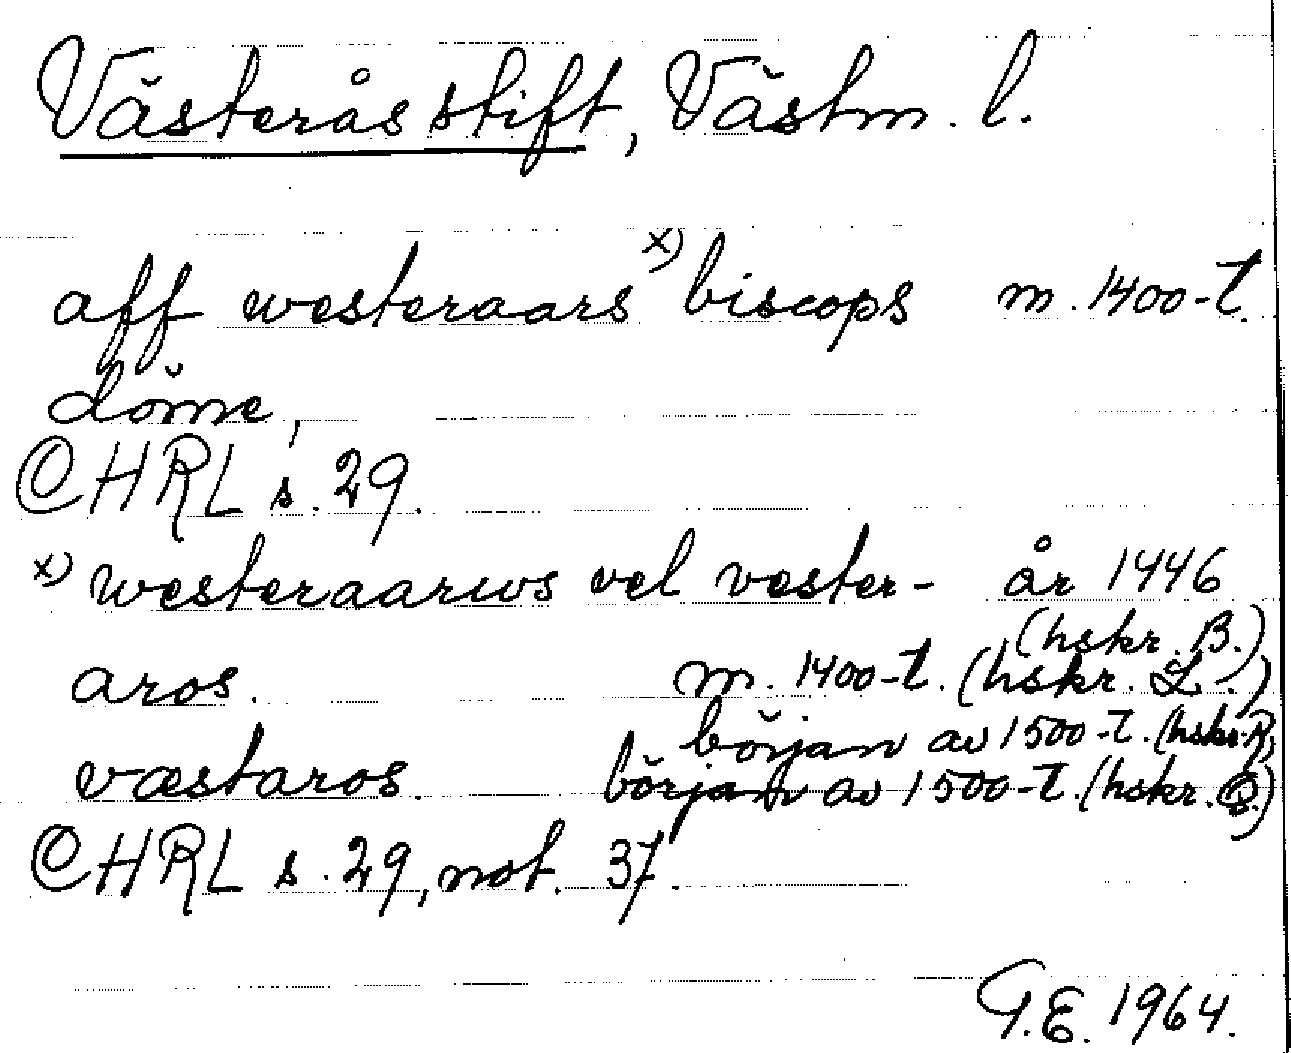 Västerås stift, Västm. l.
aff westeraars x) biscops m. 1400-t.
döme,
CHRL s. 29.
x) westeraarws vel vester- år 1446
(hskr. B.)
aros. m. 1400-t. (hskr. L.)
början av 1500-t. (hskr. R)
væstaros. början av 1500-t. (hskr. Q.)
CHRL s. 29, not. 37.
G.E. 1964.